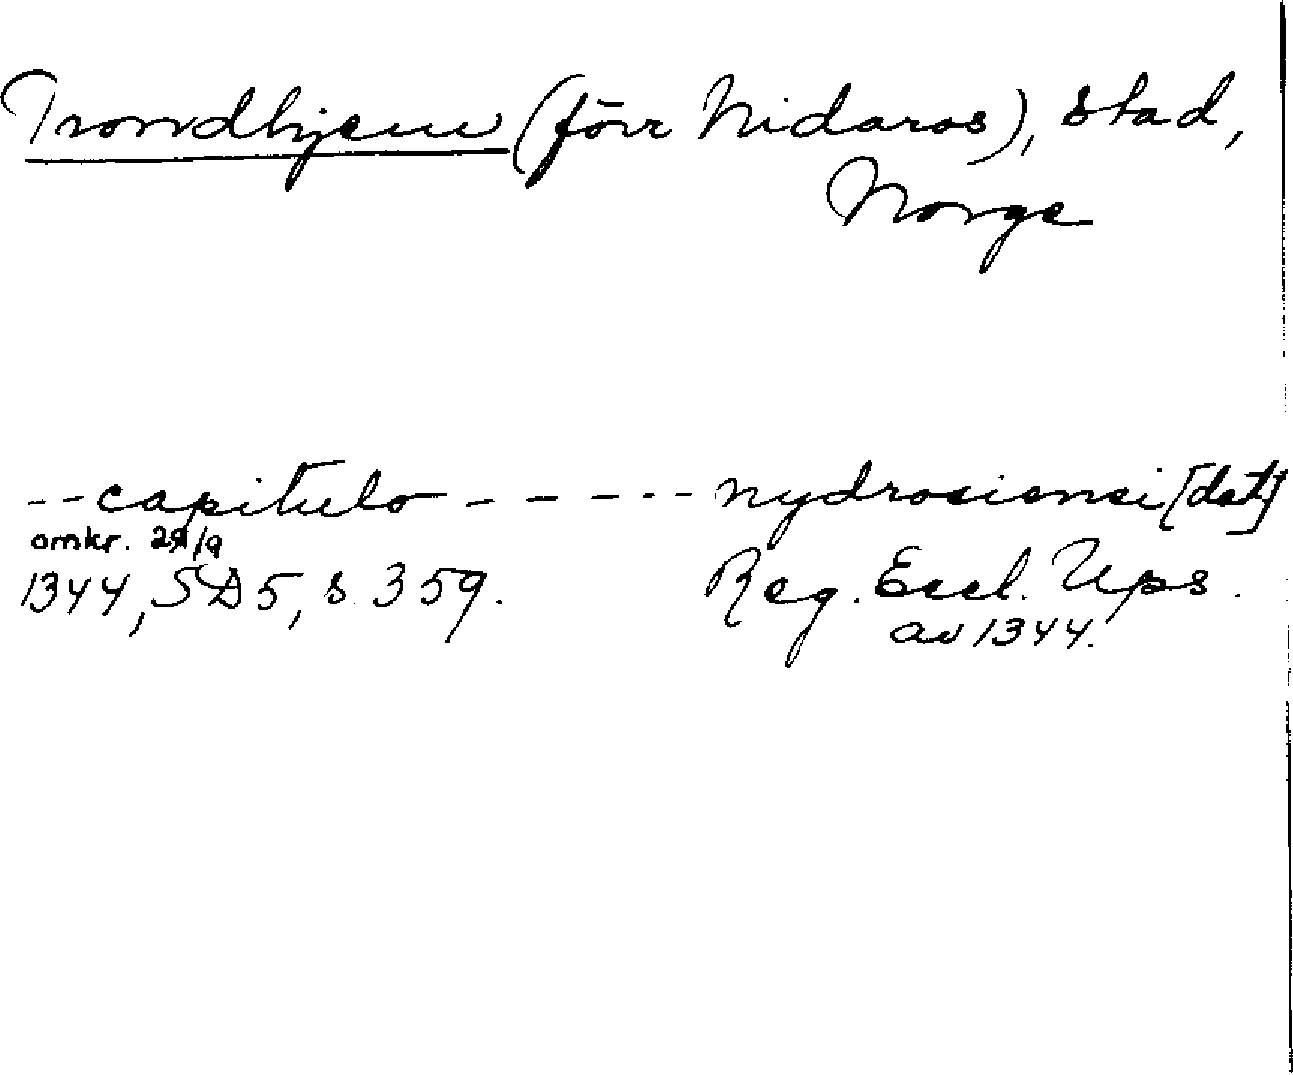 Trondhjem (förr Nidaros), stad,
Norge
-- capitulo ----- nydrosiensi [dat]
omkr. /9
1344, SD5, s. 359. Reg. Eccl. Ups.
av 1344.